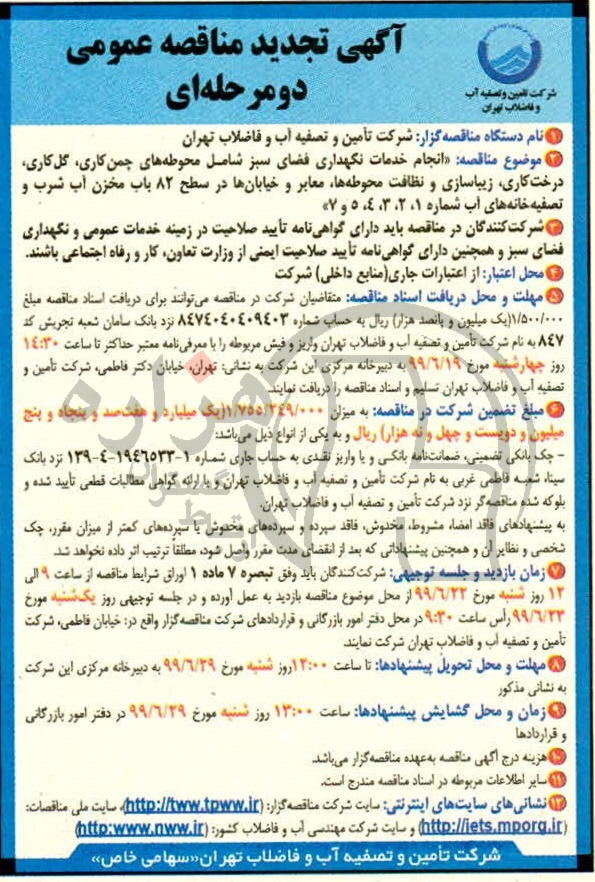 آگهی تجدید مناقصه عمومی
دو مرحله‌ای
شرکت تامین و تصفیه آب
و فاضلاب تهران
۱ نام دستگاه مناقصه‌گزار: شرکت تأمین و تصفیه آب و فاضلاب تهران
۲ موضوع مناقصه: «انجام خدمات نگهداری فضای سبز شامل محوطه‌های چمن‌کاری، گل‌کاری،
درخت‌کاری، زیباسازی و نظافت محوطه‌ها، معابر و خیابان‌ها در سطح ۸۲ باب مخزن آب شرب و
تصفیه‌خانه‌های آب شماره ۱، ۲، ۳، ۴، ۵ و ۷»
۳ شرکت‌کنندگان در مناقصه باید دارای گواهی‌نامه تأیید صلاحیت در زمینه خدمات عمومی و نگهداری
فضای سبز و همچنین دارای گواهی‌نامه تأیید صلاحیت ایمنی از وزارت تعاون، کار و رفاه اجتماعی باشند.
۴ محل اعتبار: از اعتبارات جاری(منابع داخلی) شرکت
۵ مهلت و محل دریافت اسناد مناقصه: متقاضیان شرکت در مناقصه می‌توانند برای دریافت اسناد مناقصه مبلغ
۱/۵۰۰/۰۰۰(یک میلیون و پانصد هزار) ریال به حساب شماره ۸۴۷۴۰۴۰۴۰۹۴۰۳ نزد بانک سامان شعبه تجریش کد
۸۴۷ به نام شرکت تأمین و تصفیه آب و فاضلاب تهران واریز و فیش مربوطه را با معرفی‌نامه معتبر حداکثر تا ساعت ۱۴:۳۰
روز چهارشنبه مورخ ۹۹/۶/۱۹ به دبیرخانه مرکزی این شرکت به نشانی: تهران، خیابان دکتر فاطمی، شرکت تأمین و
تصفیه آب و فاضلاب تهران تسلیم و اسناد مناقصه را دریافت نمایند.
۶ مبلغ تضمین شرکت در مناقصه: به میزان ۱/۷۵۵/۲۴۹/۰۰۰(یک میلیارد و هفت‌صد و پنجاه و پنج
میلیون و دویست و چهل و نه هزار) ریال و به یکی از انواع ذیل می‌باشد:
- چک بانکی تضمینی، ضمانت‌نامه بانکی و یا واریز نقدی به حساب جاری شماره ۱-۱۹۴۶۵۳۳-۴-۱۳۹ نزد بانک
سینا، شعبه فاطمی غربی به نام شرکت تأمین و تصفیه آب و فاضلاب تهران و یا ارائه گواهی مطالبات قطعی تأیید شده و
بلوکه شده مناقصه‌گر نزد شرکت تأمین و تصفیه آب و فاضلاب تهران.
به پیشنهادهای فاقد امضاء، مشروط، مخدوش، فاقد سپرده و سپرده‌های مخدوش یا سپرده‌های کمتر از میزان مقرر، چک
شخصی و نظایر آن و همچنین پیشنهاداتی که بعد از انقضای مدت مقرر واصل شود، مطلقاً ترتیب اثر داده نخواهد شد.
۷ زمان بازدید و جلسه توجیهی: شرکت‌کنندگان باید وفق تبصره ۷ ماده ۱ اوراق شرایط مناقصه از ساعت ۹ الی
۱۲ روز شنبه مورخ ۹۹/۶/۲۲ از محل موضوع مناقصه بازدید به عمل آورده و در جلسه توجیهی روز یک‌شنبه مورخ
۹۹/۶/۲۳ رأس ساعت ۹:۳۰ در محل دفتر امور بازرگانی و قراردادهای شرکت مناقصه‌گزار واقع در: خیابان فاطمی، شرکت
تأمین و تصفیه آب و فاضلاب تهران شرکت نمایند.
۸ مهلت و محل تحویل پیشنهادها: تا ساعت ۱۲:۰۰ روز شنبه مورخ ۹۹/۶/۲۹ به دبیرخانه مرکزی این شرکت
به نشانی مذکور
۹ زمان و محل گشایش پیشنهادها: ساعت ۱۳:۰۰ روز شنبه مورخ ۹۹/۶/۲۹ در دفتر امور بازرگانی
و قراردادها
۱۰ هزینه درج آگهی مناقصه به‌عهده مناقصه‌گزار می‌باشد.
۱۱ سایر اطلاعات مربوطه در اسناد مناقصه مندرج است.
۱۲ نشانی‌های سایت‌های اینترنتی: سایت شرکت مناقصه‌گزار: (http://tww.tpww.ir)، سایت ملی مناقصات:
(http://iets.mporg.ir) و سایت شرکت مهندسی آب و فاضلاب کشور: (http:www.nww.ir)
شرکت تأمین و تصفیه آب و فاضلاب تهران«سهامی خاص»